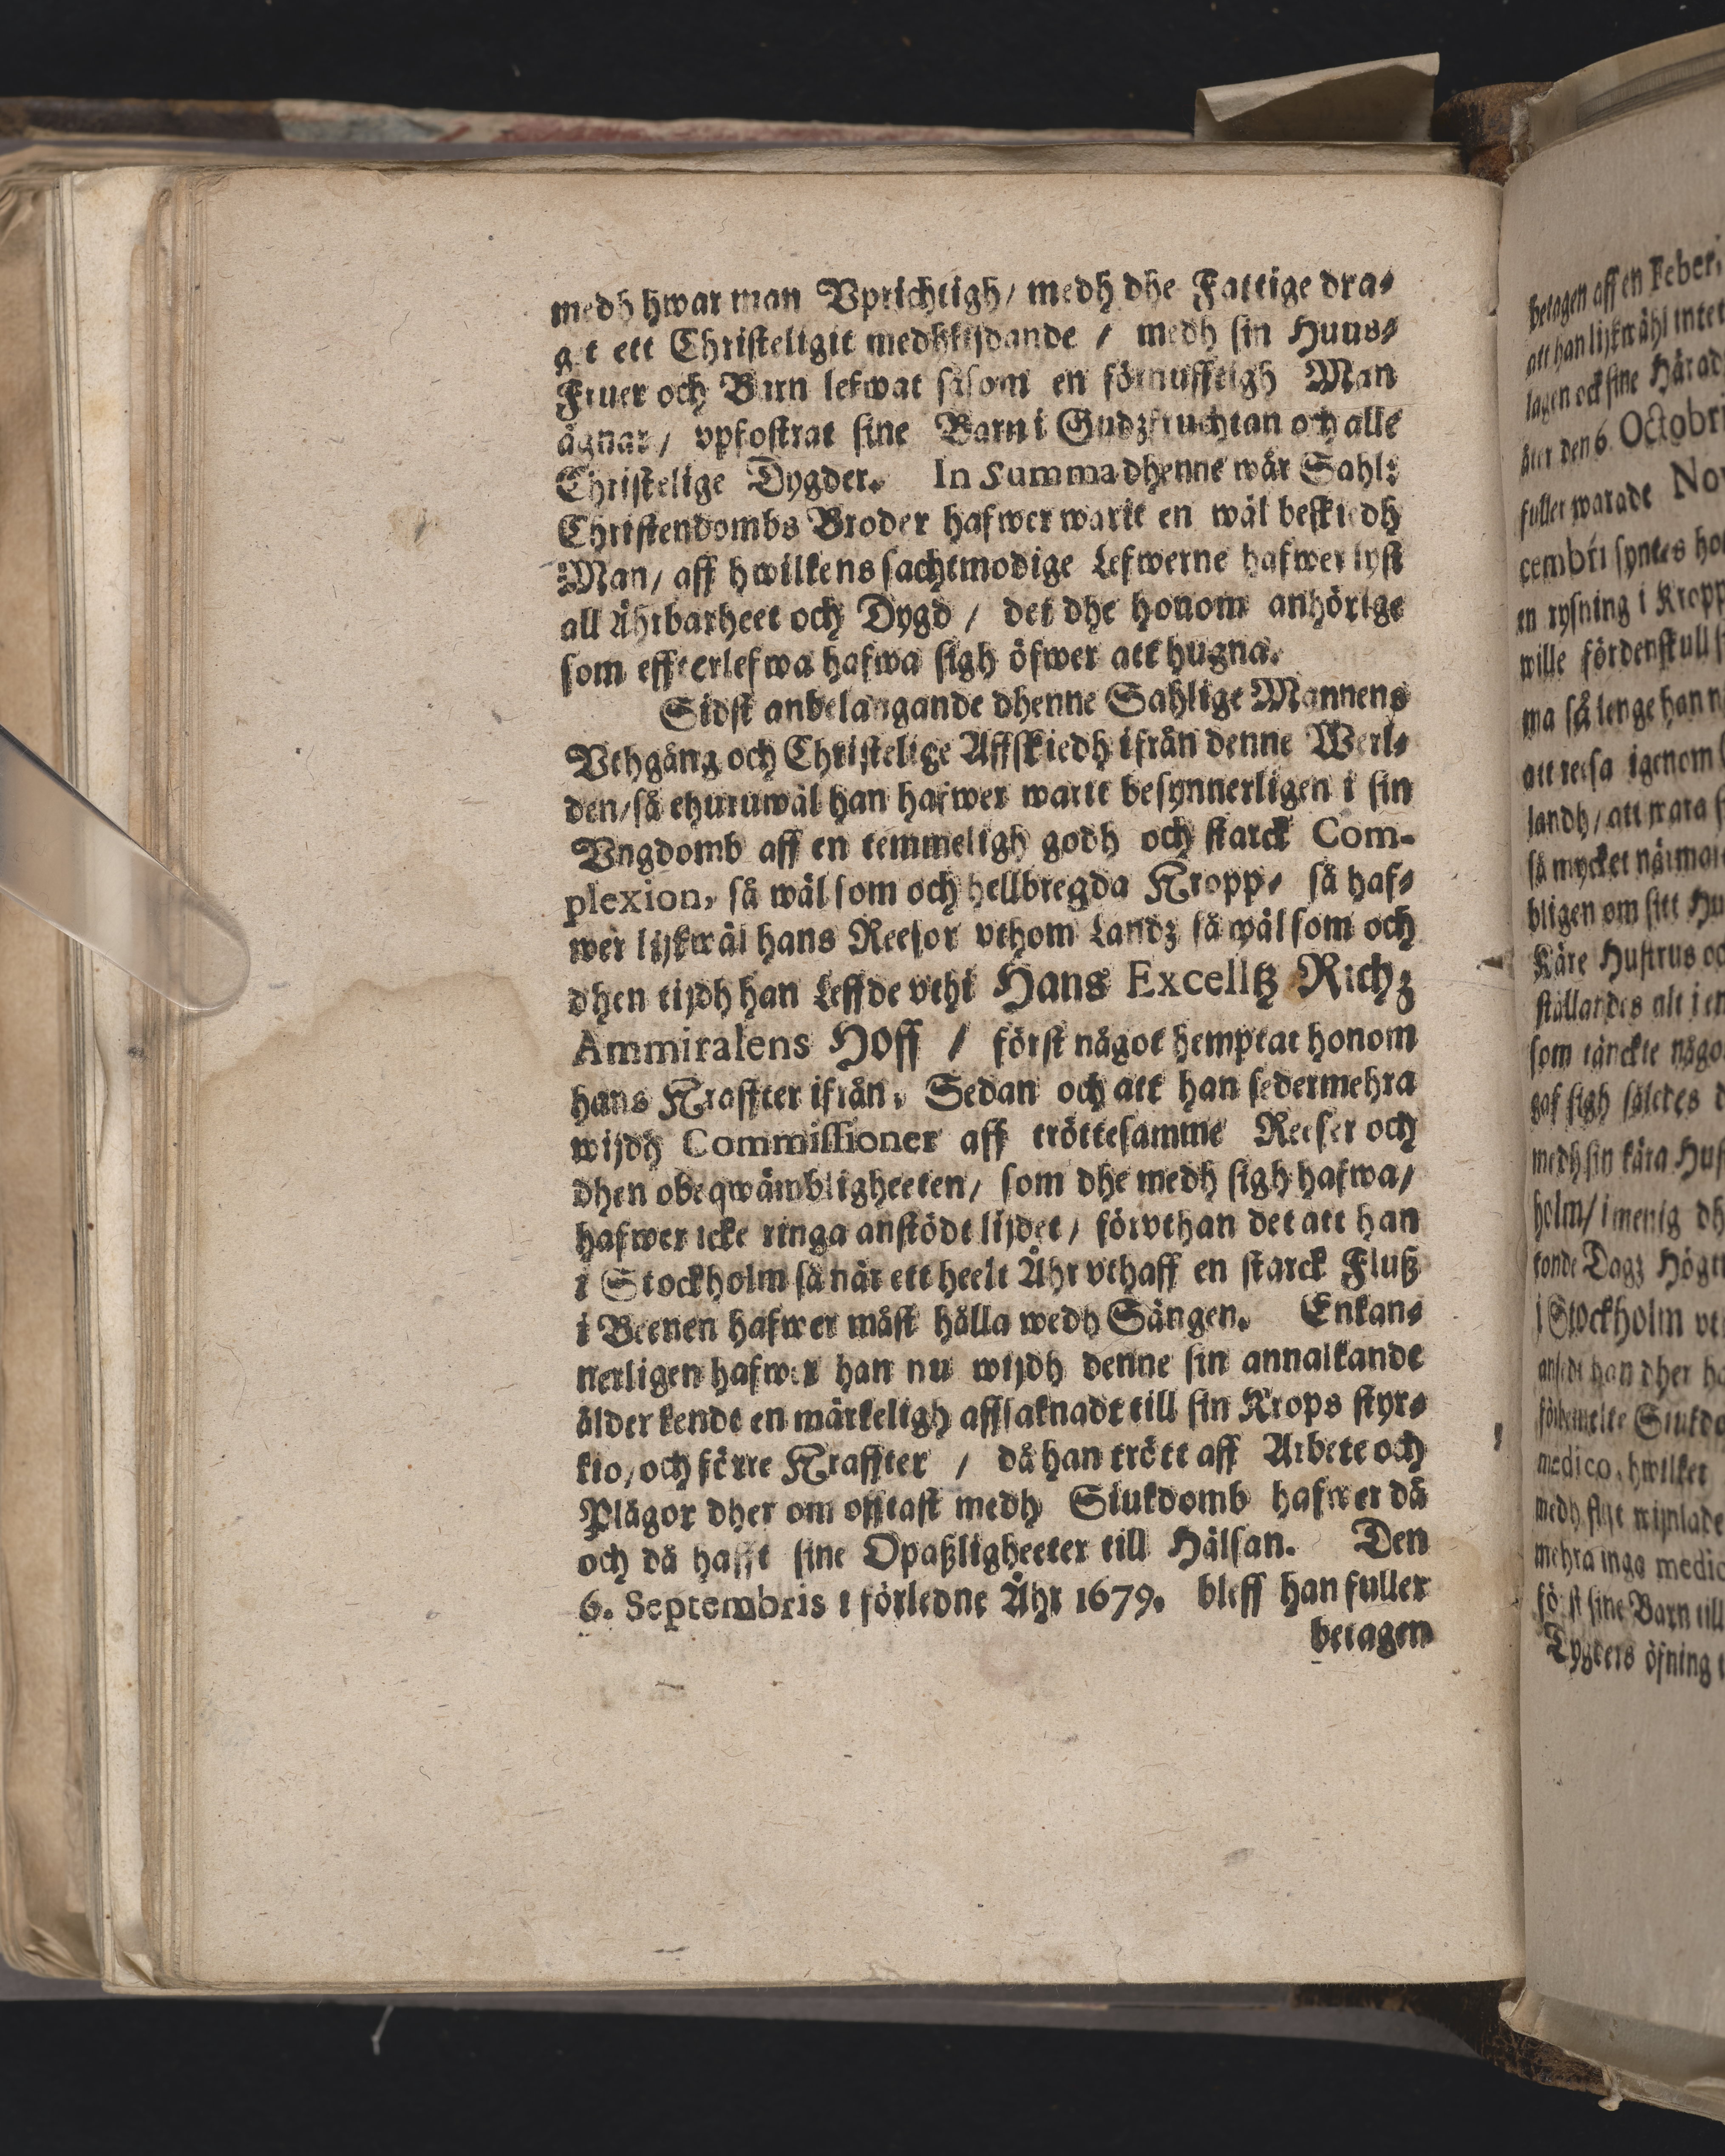 medh hwar man Vprichtigh/ medh dhe Fattige dra⸗
git ett Christeligit medhlijdande / medh sin Huus⸗
Fruer och Barn lefwat såsom en förnufftigh Man
ägnar/ vpfostrat sine Barn i Gudzfruchtan och alle
Christelige Dygder. In Summa dhenne wår Sahl:
Christendombs Broder hafwer warit en wäl beskiedh
Man/ aff hwilkens sachtmodige Lefwerne hafwer lyst
all Ährbarheet och Dygd / det dhe honom anhörige
som effterlefwa hafwa sigh öfwer att hugna.
Sidst anbelangande dhenne Sahlige Mannens
Vthgång och Christelige Affskiedh ifrån denne Werl⸗
den/ så ehuruwäl han hafwer warit besynnerligen i sin
Vngdomb aff en temmeligh godh och starck Com-
plexion, så wäl som och hellbregda Kropp, så haf⸗
wer lijkwäl hans Reesor vthom Landz så wäl som och
dhen tijdh han Leffde vthi Hans Excelltz Richz
Ammiralens Hoff / först något hemptat honom
hans Kraffter ifrån, Sedan och att han sedermehra
wijdh Commissioner aff tröttesamme Reeser och
dhen obeqwämbligheeten/ som dhe medh sigh hafwa/
hafwer icke ringa anstödt lijdet/ förvthan det att han
i Stockholm så när ett heelt Åhr vthaff en starck Fluß
i Beenen hafwer måst hålla wedh Sängen. Enkan⸗
nerligen hafwer han nu wijdh denne sin annalkande
ålder kendt en märkeligh affsaknadt till sin Krops styr⸗
kio/ och förre Kraffter / då han trött aff Arbete och
Plågor dher om offtast medh Siukdomb hafwer då
och då hafft sine Opaßligheeter till Hälsan. Den
6. Septembris i förledne Åhr 1679. bleff han fuller
betagen
betagen aff en Feber,
att han lijkwähl intet
lagen ock sine Härad
åter den 6. Octobri
fuller warade Nov
cembri syntes ho
en rysning i Kropp
wille fördenskull s
ma så lenge han n
att reesa igenom
landh/ att wara
så mycket närmar
bligen om sitt Hu
Käre Hustrus oc
ställandes alt i en
som tänckte någo
gaf sigh således
medh sin kära Hus
holm/ i menig dh
tonde Dagz Högt
i Stockholm vt
ansedt han dher ha
förbemelte Siukdo
medico, hwilket
medh flijt
mehra inga medic
först sine Barn till
Dygders öfning